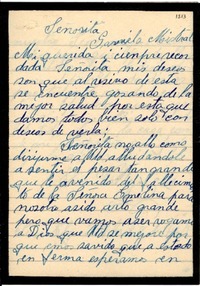 Señorita
Gavriela Mistral
Mi querida i ciempre recor
dada Señorita mis deseos
son que al resivo de esta
se encuentre gosando de la
mejor salud por esta que
damos todos bien solo con
deseos de verla;
Señorita no allo como
dirijirme a Ud alludandole
a sentir el pesar tan grande
que de avenido del fallecimi
to de la Señora Emelina para
nosotra asido arto grande
pero que vamos aser rogamos
a Dios que Ud se mejore por
que emos savido que a estado
en ferma esperamos en